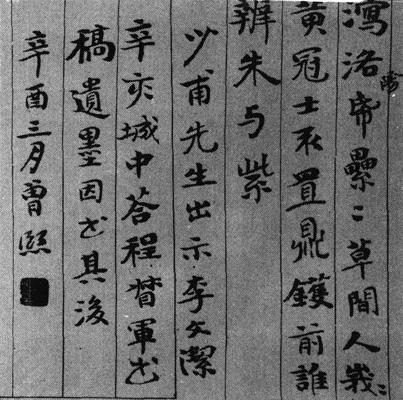 洛帝纍〻草間人峩〻
黃冠士置鼎鑊前誰
辨朱与紫
少甫先生出示李文潔
辛亥城中答程督軍书
稿遺墨因书其後
辛酉三月曾熙